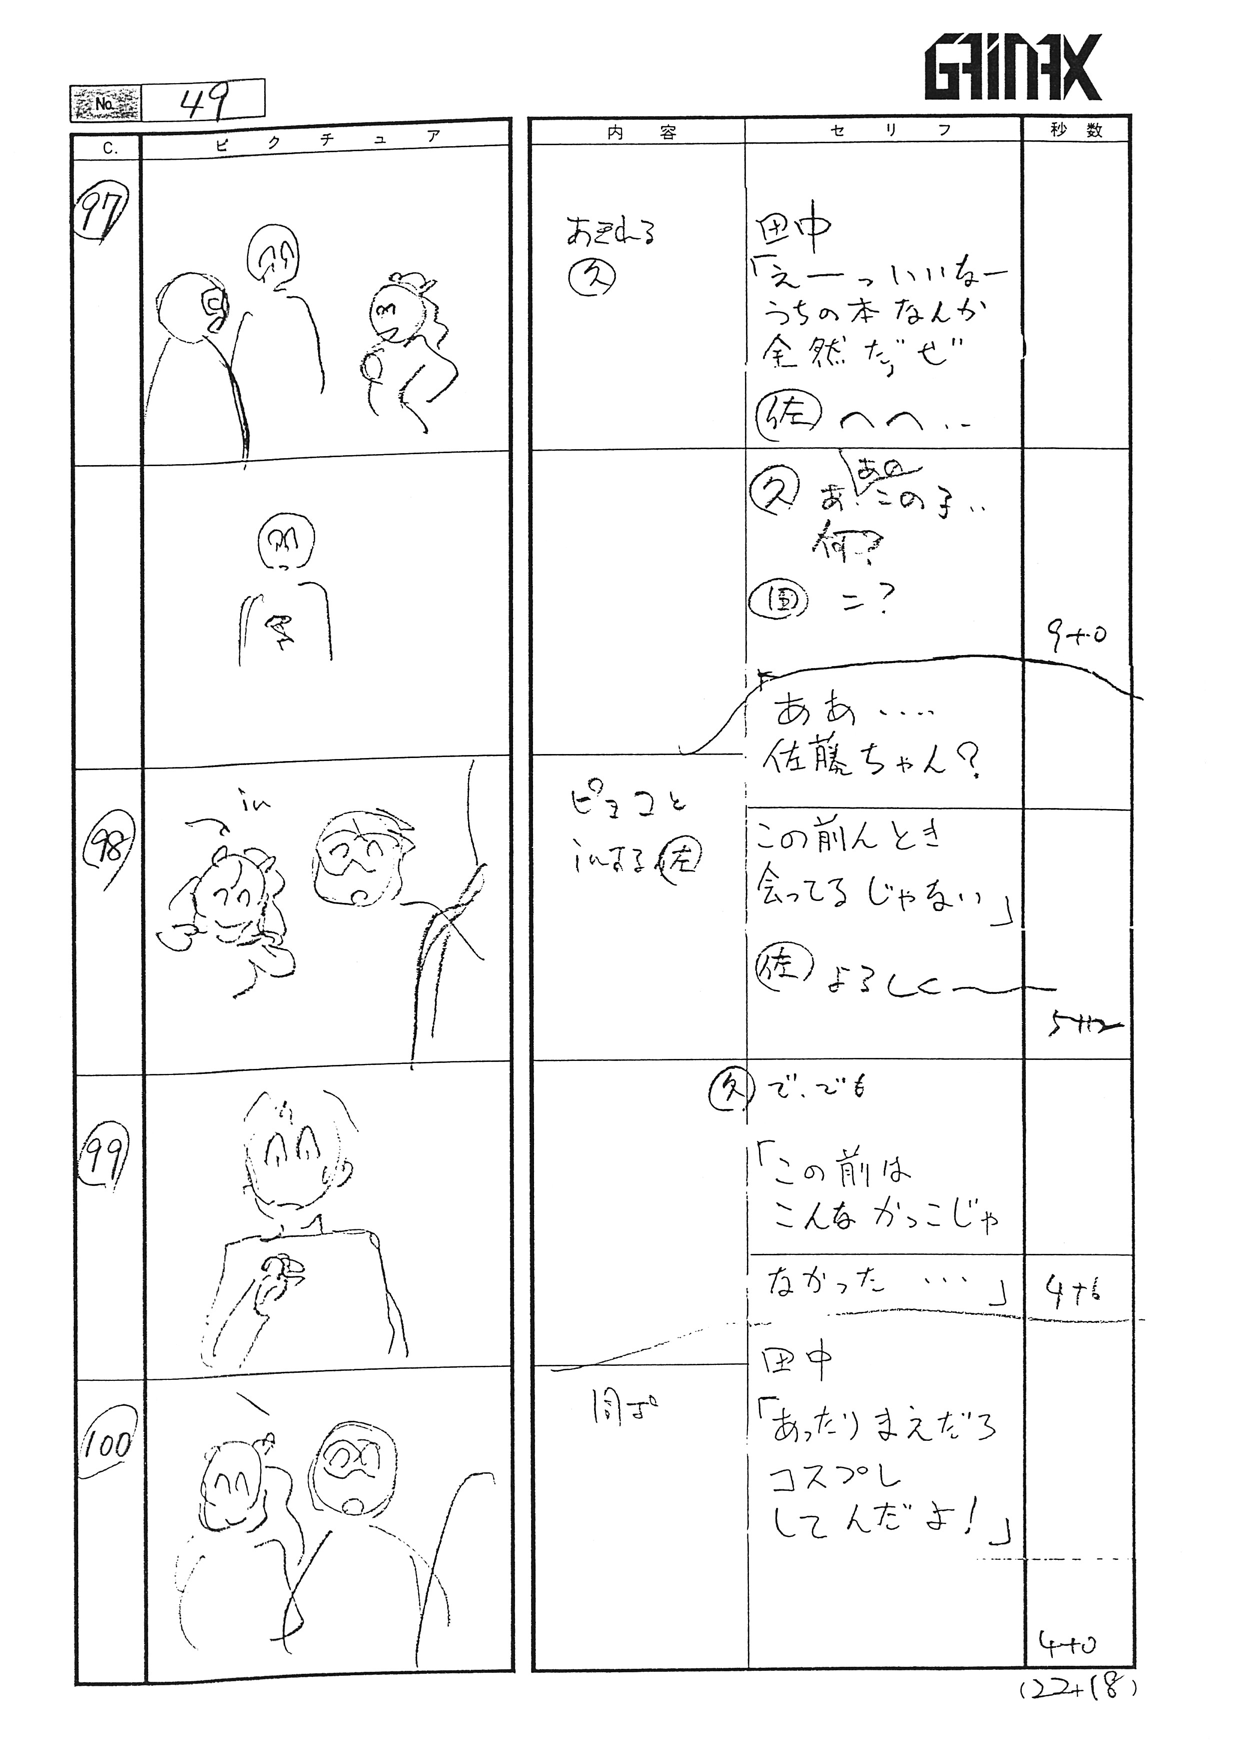 GAINAX
No. 49
C. ピクチュア 内容 セリフ 秒数
97
あきれる
久
田中
「えーっいいなー
うちの本なんか
全然だぜ
佐 へへ..
あの
久 あ、この子..
何?
田 ニ?
9+0
ああ....
佐藤ちゃん?
98
in
ピョコと
inする佐
この前んとき
会ってるじゃない」
佐 よろしく〜
5+12
99
久 で、でも
「この前は
こんなかっこじゃ
なかった ...」
4+6
100
同ポ
田中
「あったりまえだろ
コスプレ
してんだよ!」
4+0
(22+18)